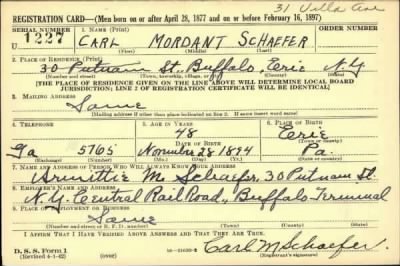 31 Villa Ave
REGISTRATION CARD—(Men born on or after April 28, 1877 and on or before February 16, 1897)
SERIAL NUMBER 1. NAME (Print) ORDER NUMBER
U 1227 CARL MORDANT SCHAEFER
(First) (Middle) (Last)
2. PLACE OF RESIDENCE (Print)
30 Putnam St. Buffalo, Erie N.Y.
(Number and street) (Town, township, village, or city) (County) (State)
[THE PLACE OF RESIDENCE GIVEN ON THE LINE ABOVE WILL DETERMINE LOCAL BOARD
JURISDICTION; LINE 2 OF REGISTRATION CERTIFICATE WILL BE IDENTICAL]
3. MAILING ADDRESS
Same
(Mailing address if other than place indicated on line 2. If same insert word same)
4. TELEPHONE 5. AGE IN YEARS 6. PLACE OF BIRTH
48 Erie
DATE OF BIRTH (Town or county)
Ga 5765 November 28 1894 Pa.
(Exchange) (Number) (Mo.) (Day) (Yr.) (State or country)
7. NAME AND ADDRESS OF PERSON WHO WILL ALWAYS KNOW YOUR ADDRESS
M. Schaefer, 30 Putnam St.
8. EMPLOYER'S NAME AND ADDRESS
N.Y. Central Rail Road, Buffalo Terminal
9. PLACE OF EMPLOYMENT OR BUSINESS
Same
(Number and street or R. F. D. number) (Town) (County) (State)
I AFFIRM THAT I HAVE VERIFIED ABOVE ANSWERS AND THAT THEY ARE TRUE.
D. S. S. Form 1
(Revised 4-1-42) (over) Carl M Schaefer.
(Registrant's signature)